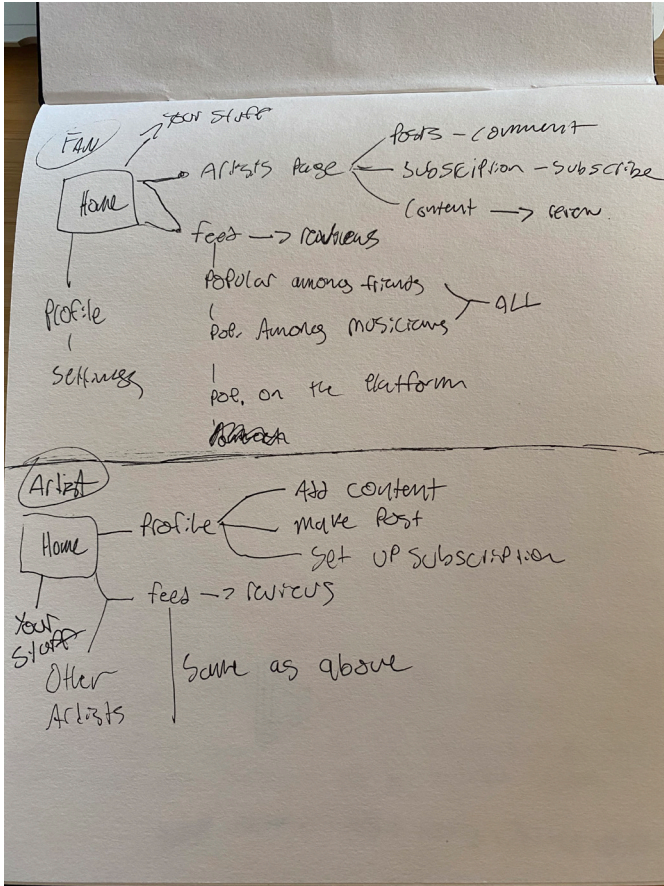 FAN
Your stuff
Home
Artists Page
Posts - comment
Subscription - Subscribe
Content → review
feed → reviews
Popular among friends
Pop. Among musicians
ALL
Pop. on the Platform
Profile
Settings
Artist
Home
Profile
Add content
make Post
Set up subscription
feed → reviews
Your
Stuff
Same as above
Other
Artists